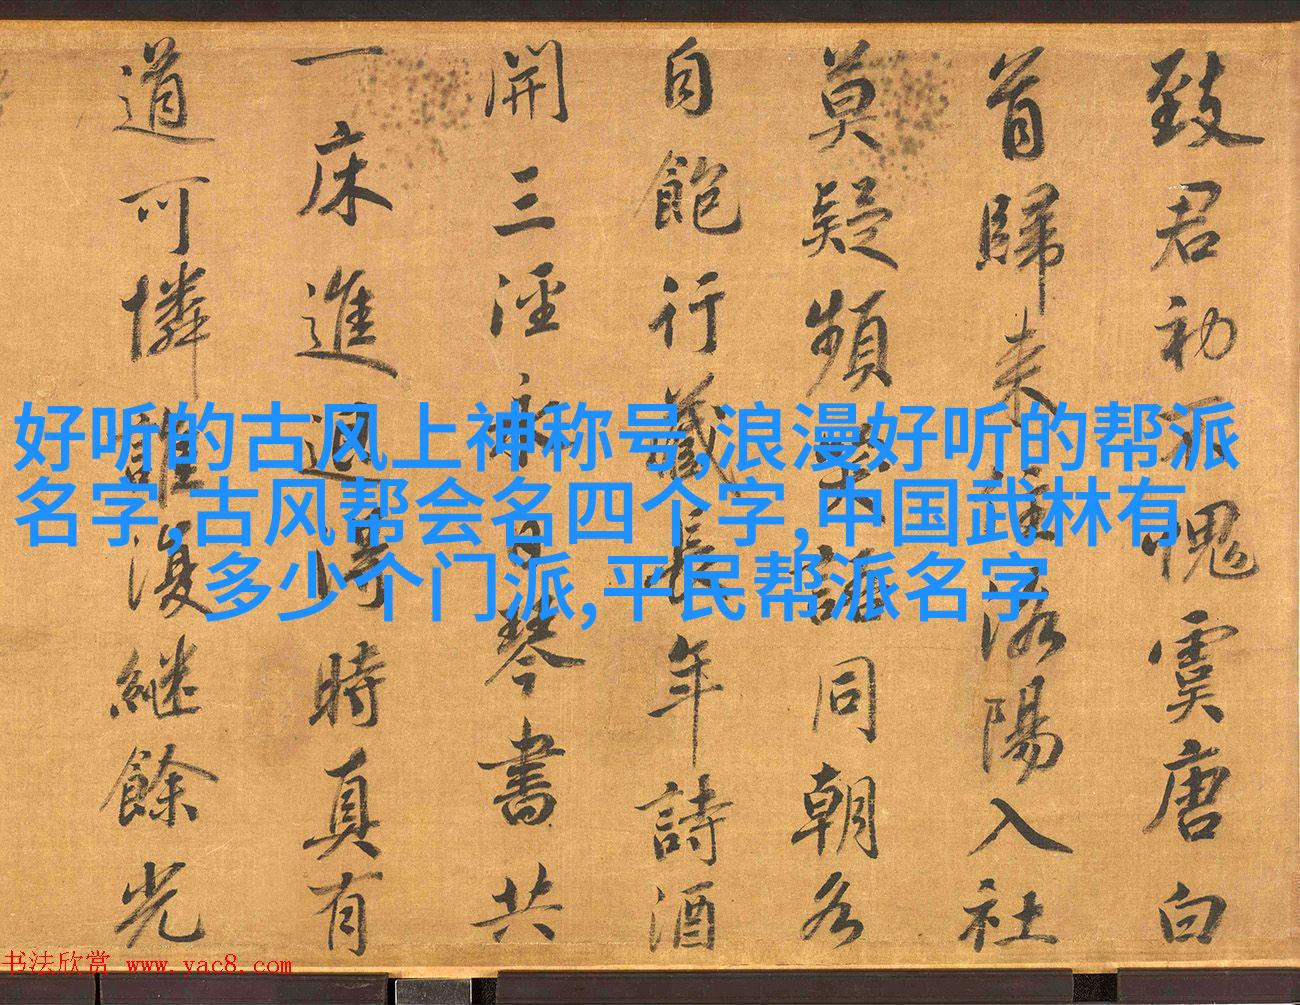 致君初不愧虞唐白
首歸来住洛陽入社
莫疑頻笑語同朝各
自飽行藏長年詩酒
開三涇永日琴書共
一床進退得時真有
道可憐誰復繼餘光
好听的古风上神称号,浪漫好听的帮派
名字,古风帮会名四个字,中国武林有
多少个门派,平民帮派名字
书法欣赏 www.yac8.com